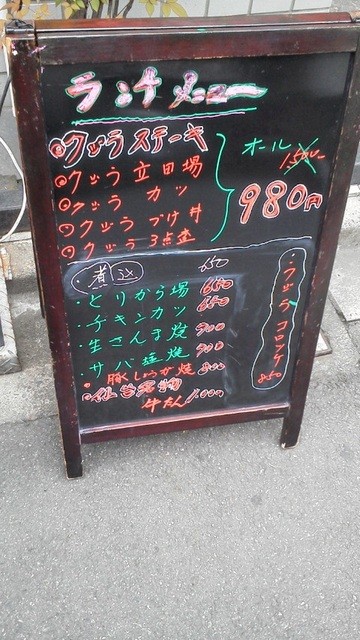 ランチメニュー
◎クヅラステーキ
◎クヅラ立田場
◎クヅラカツ
◎クヅラづけ丼
◎クヅラ3点盛
オール
980円
煮込 650
・とりから場 650
・チキンカツ 650
・生さんま焼 900
・サバ塩焼 900
・豚しょうが焼 800
・仙台名物
牛たん 1.000
・クヅラコロッケ
850